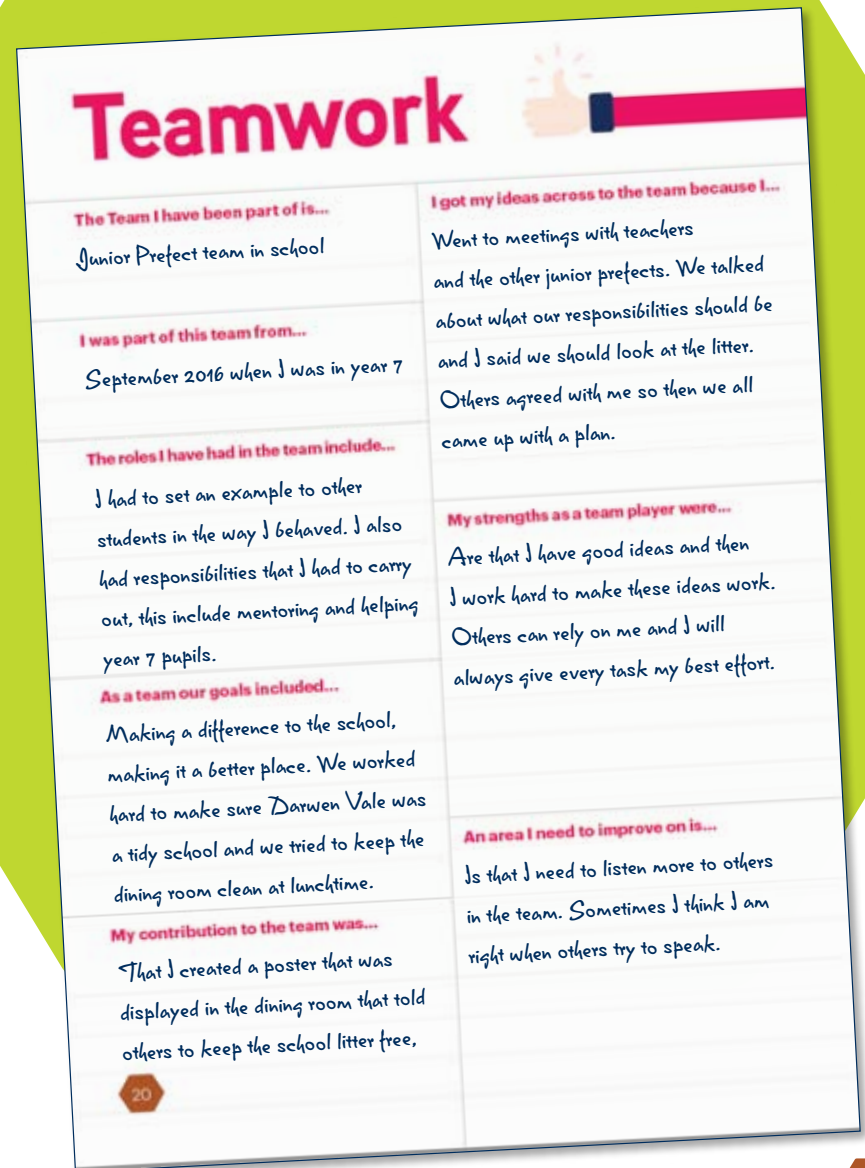 Teamwork
The Team I have been part of is...
Junior Prefect team in school
I was part of this team from...
September 2016 when I was in year 7
The roles I have had in the team include...
I had to set an example to other
students in the way I behaved. I also
had responsibilities that I had to carry
out, this include mentoring and helping
year 7 pupils.
As a team our goals included...
Making a difference to the school,
making it a better place. We worked
hard to make sure Darwen Vale was
a tidy school and we tried to keep the
dining room clean at lunchtime.
My contribution to the team was...
That I created a poster that was
displayed in the dining room that told
others to keep the school litter free,
20
I got my ideas across to the team because I...
Went to meetings with teachers
and the other junior prefects. We talked
about what our responsibilities should be
and I said we should look at the litter.
Others agreed with me so then we all
came up with a plan.
My strengths as a team player were...
Are that I have good ideas and then
I work hard to make these ideas work.
Others can rely on me and I will
always give every task my best effort.
An area I need to improve on is...
Is that I need to listen more to others
in the team. Sometimes I think I am
right when others try to speak.